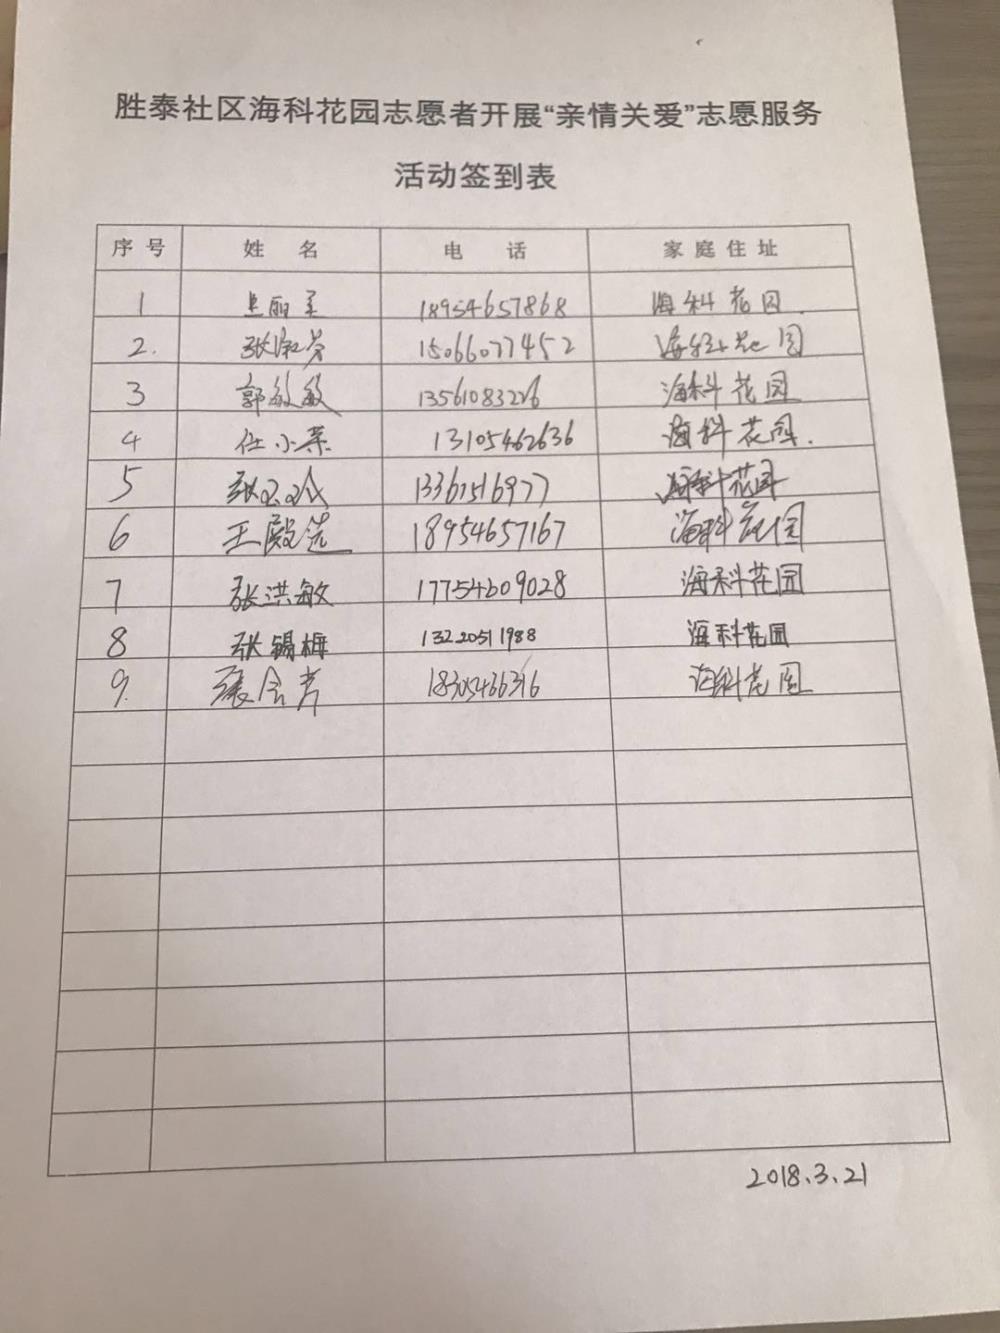 胜泰社区海科花园志愿者开展“亲情关爱”志愿服务
活动签到表
序号 姓名 电话 家庭住址
1 18954657868 海科花园
2. 张淑芳 15066077452 海科花园
3 郭敏敏 13561083226 海科花园
4 任小菜 13105462636 海科花园.
5 13361516977 海科花园
6 王殿选 18954657167 海科花园
7 张洪敏 17754609028 海科花园
8 张锡梅 13220511988 海科花园
9. 张会芳 18305466316 海科花园
2018.3.21